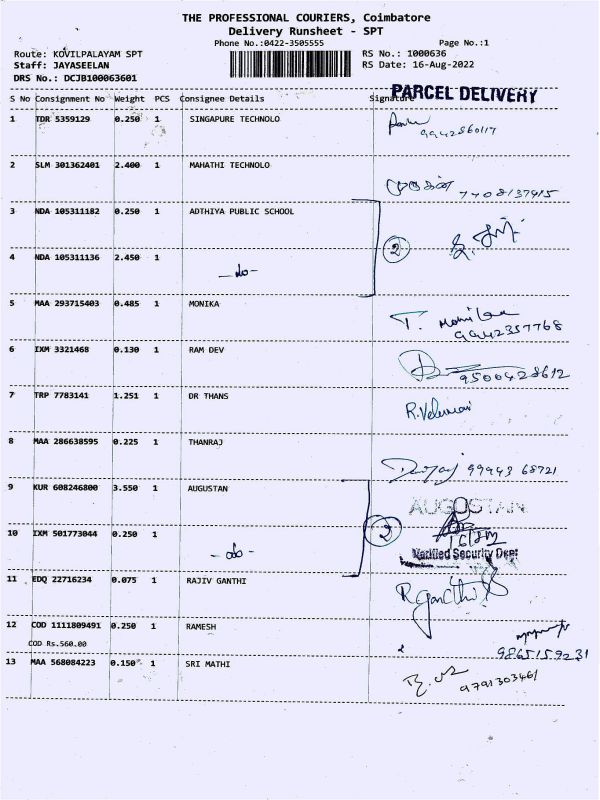 THE PROFESSIONAL COURIERS, Coimbatore
Delivery Runsheet - SPT
Phone No.:0422-3505555 Page No.:1
Route: KOVILPALAYAM SPT RS No.: 1000636
Staff: JAYASEELAN RS Date: 16-Aug-2022
DRS No.: DCJB100063601
PARCEL DELIVERY
S No Consignment No Weight PCS Consignee Details Signature
1 TDR 5359129 0.250 1 SINGAPURE TECHNOLO
9942860117
2 SLM 301362401 2.400 1 MAHATHI TECHNOLO
முருகன் 7408137415
3 NDA 105311182 0.250 1 ADTHIYA PUBLIC SCHOOL
2
4 NDA 105311136 2.450 1
-do-
5 MAA 293715403 0.485 1 MONIKA
T.
9942357768
6 IXM 3321468 0.130 1 RAM DEV
9500428612
7 TRP 7783141 1.251 1 DR THANS
R.Velumani
8 MAA 286638595 0.225 1 THANRAJ
99943 68721
9 KUR 608246800 3.550 1 AUGUSTAN
AUGUSTAN
2
10 IXM 501773044 0.250 1
-do-
Verified Security Dept
11 EDQ 22716234 0.075 1 RAJIV GANTHI
R.Gandhi
12 COD 1111809491 0.250 1 RAMESH
COD Rs.560.00
9865159231
13 MAA 568084223 0.150 1 SRI MATHI
9791303461